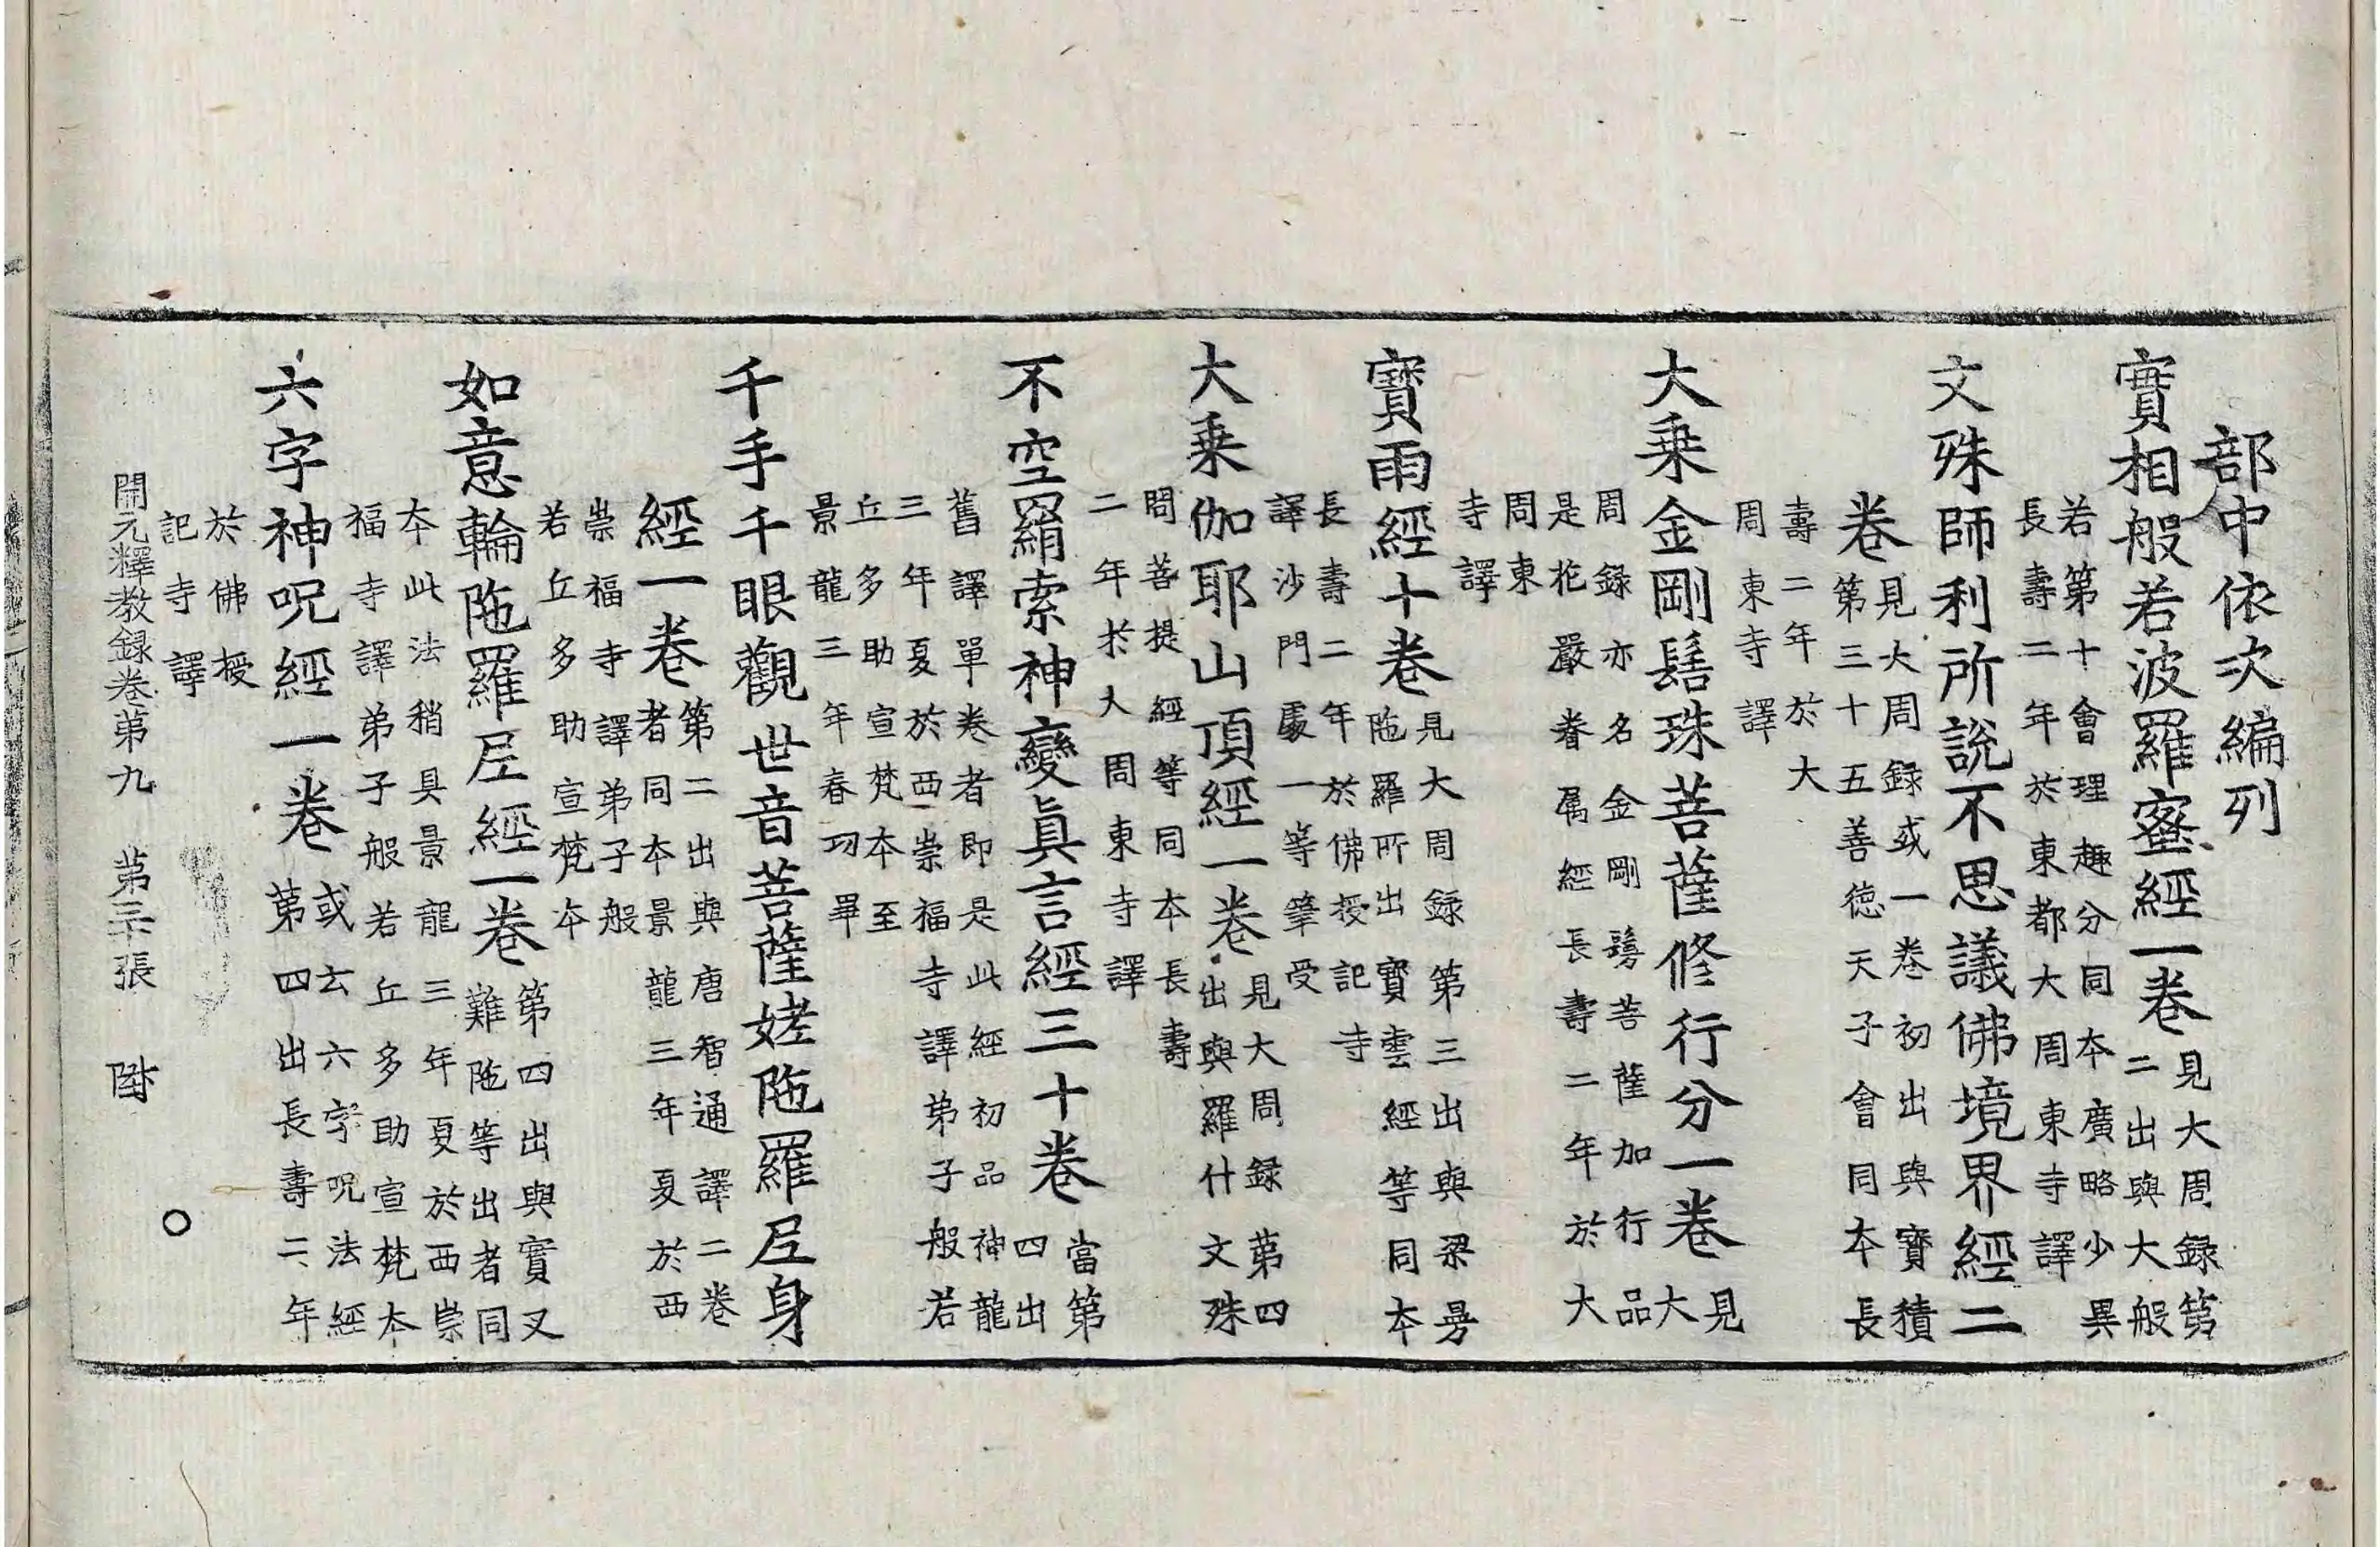 部中依次編列
實相般若波羅蜜經一卷
見大周録第
二出與大般
若第十會理趣分同本廣略少異
長壽二年於東都大周東寺譯
文殊師利所說不思議佛境界經二
卷
見大周録或一卷初出與寶積
第三十五善德天子會同本長
壽二年於大
周東寺譯
大乗金剛髻珠菩薩修行分一卷
見
大
周録亦名金剛鬘菩薩加行品
是花嚴眷属經長壽二年於大
周東
寺譯
寶雨經十卷
見大周録第三出與梁曼
陁羅所出寶雲經等同本
長壽二年於佛授記寺
譯沙門處一等筆受
大乗伽耶山頂經一卷
見大周録第四
出與羅什文殊
問菩提經等同本長壽
二年於大周東寺譯
不空羂索神變真言經三十卷
當第
四出
舊譯單卷者即是此經初品神龍
三年夏於西崇福寺譯弟子般若
丘多助宣梵本至
景龍三年春功畢
千手千眼觀世音菩薩姥陁羅尼身
經一卷
第二出與唐智通譯二卷
者同本景龍三年夏於西
崇福寺譯弟子般
若丘多助宣梵本
如意輪陁羅尼經一卷
第四出與實叉
難陁等出者同
本此法稍具景龍三年夏於西崇
福寺譯弟子般若丘多助宣梵本
六字神呪經一卷
或云六字呪法經
第四出長壽二年
於佛授
記寺譯
開元釋教録卷第九 第三十張 陞